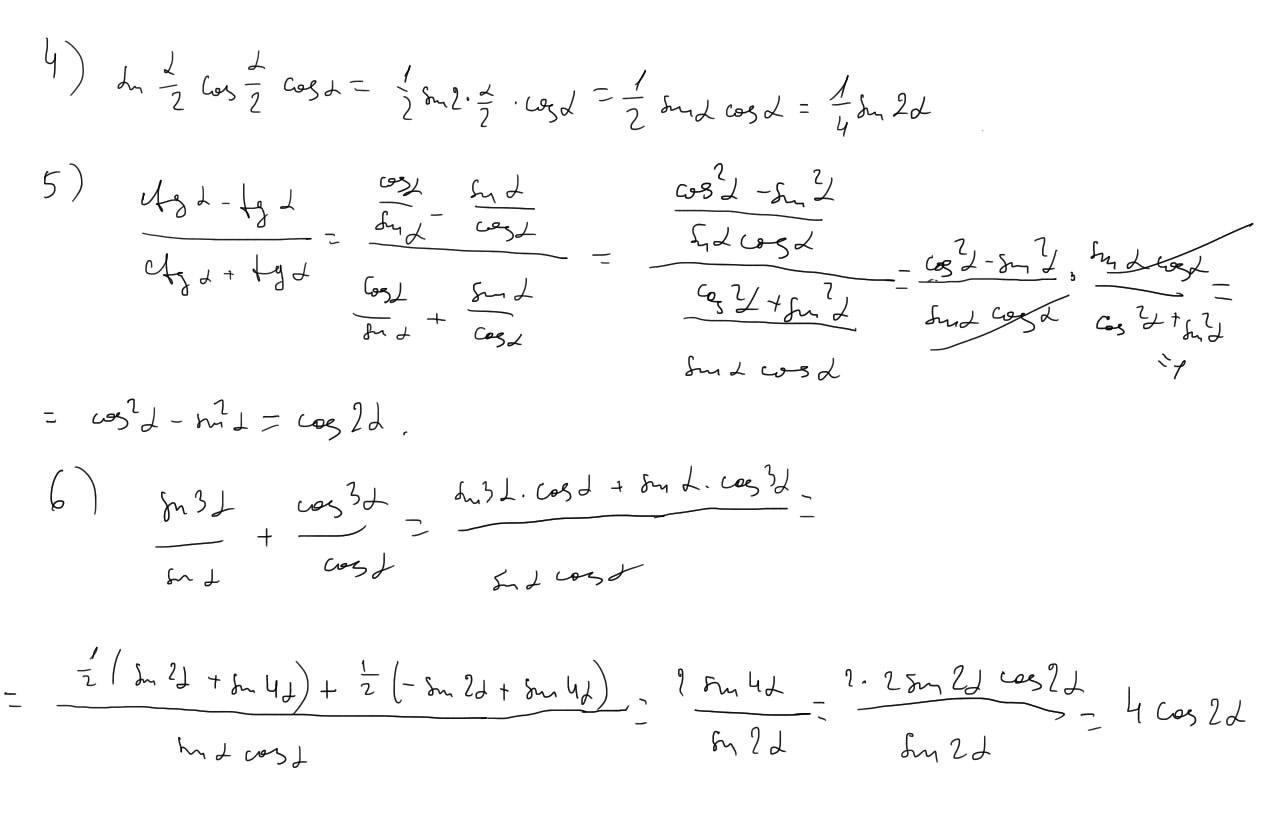 4) sin α/2 cos α/2 cos α = 1/2 sin 2 · α/2 · cos α = 1/2 sin α cos α = 1/4 sin 2α
5) (ctg α - tg α)/(ctg α + tg α) = (cos α/sin α - sin α/cos α)/(cos α/sin α + sin α/cos α) = ((cos² α - sin² α)/(sin α cos α))/((cos² α + sin² α)/(sin α cos α)) = (cos² α - sin² α)/(sin α cos α) · (sin α cos α)/(cos² α + sin² α) =
=1
= cos² α - sin² α = cos 2α.
6) sin 3α/sin α + cos 3α/cos α = (sin 3α · cos α + sin α · cos 3α)/(sin α cos α) =
= (1/2 (sin 2α + sin 4α) + 1/2 (- sin 2α + sin 4α))/(sin α cos α) = 2 sin 4α/sin 2α = 2 · 2 sin 2α cos 2α/sin 2α = 4 cos 2α